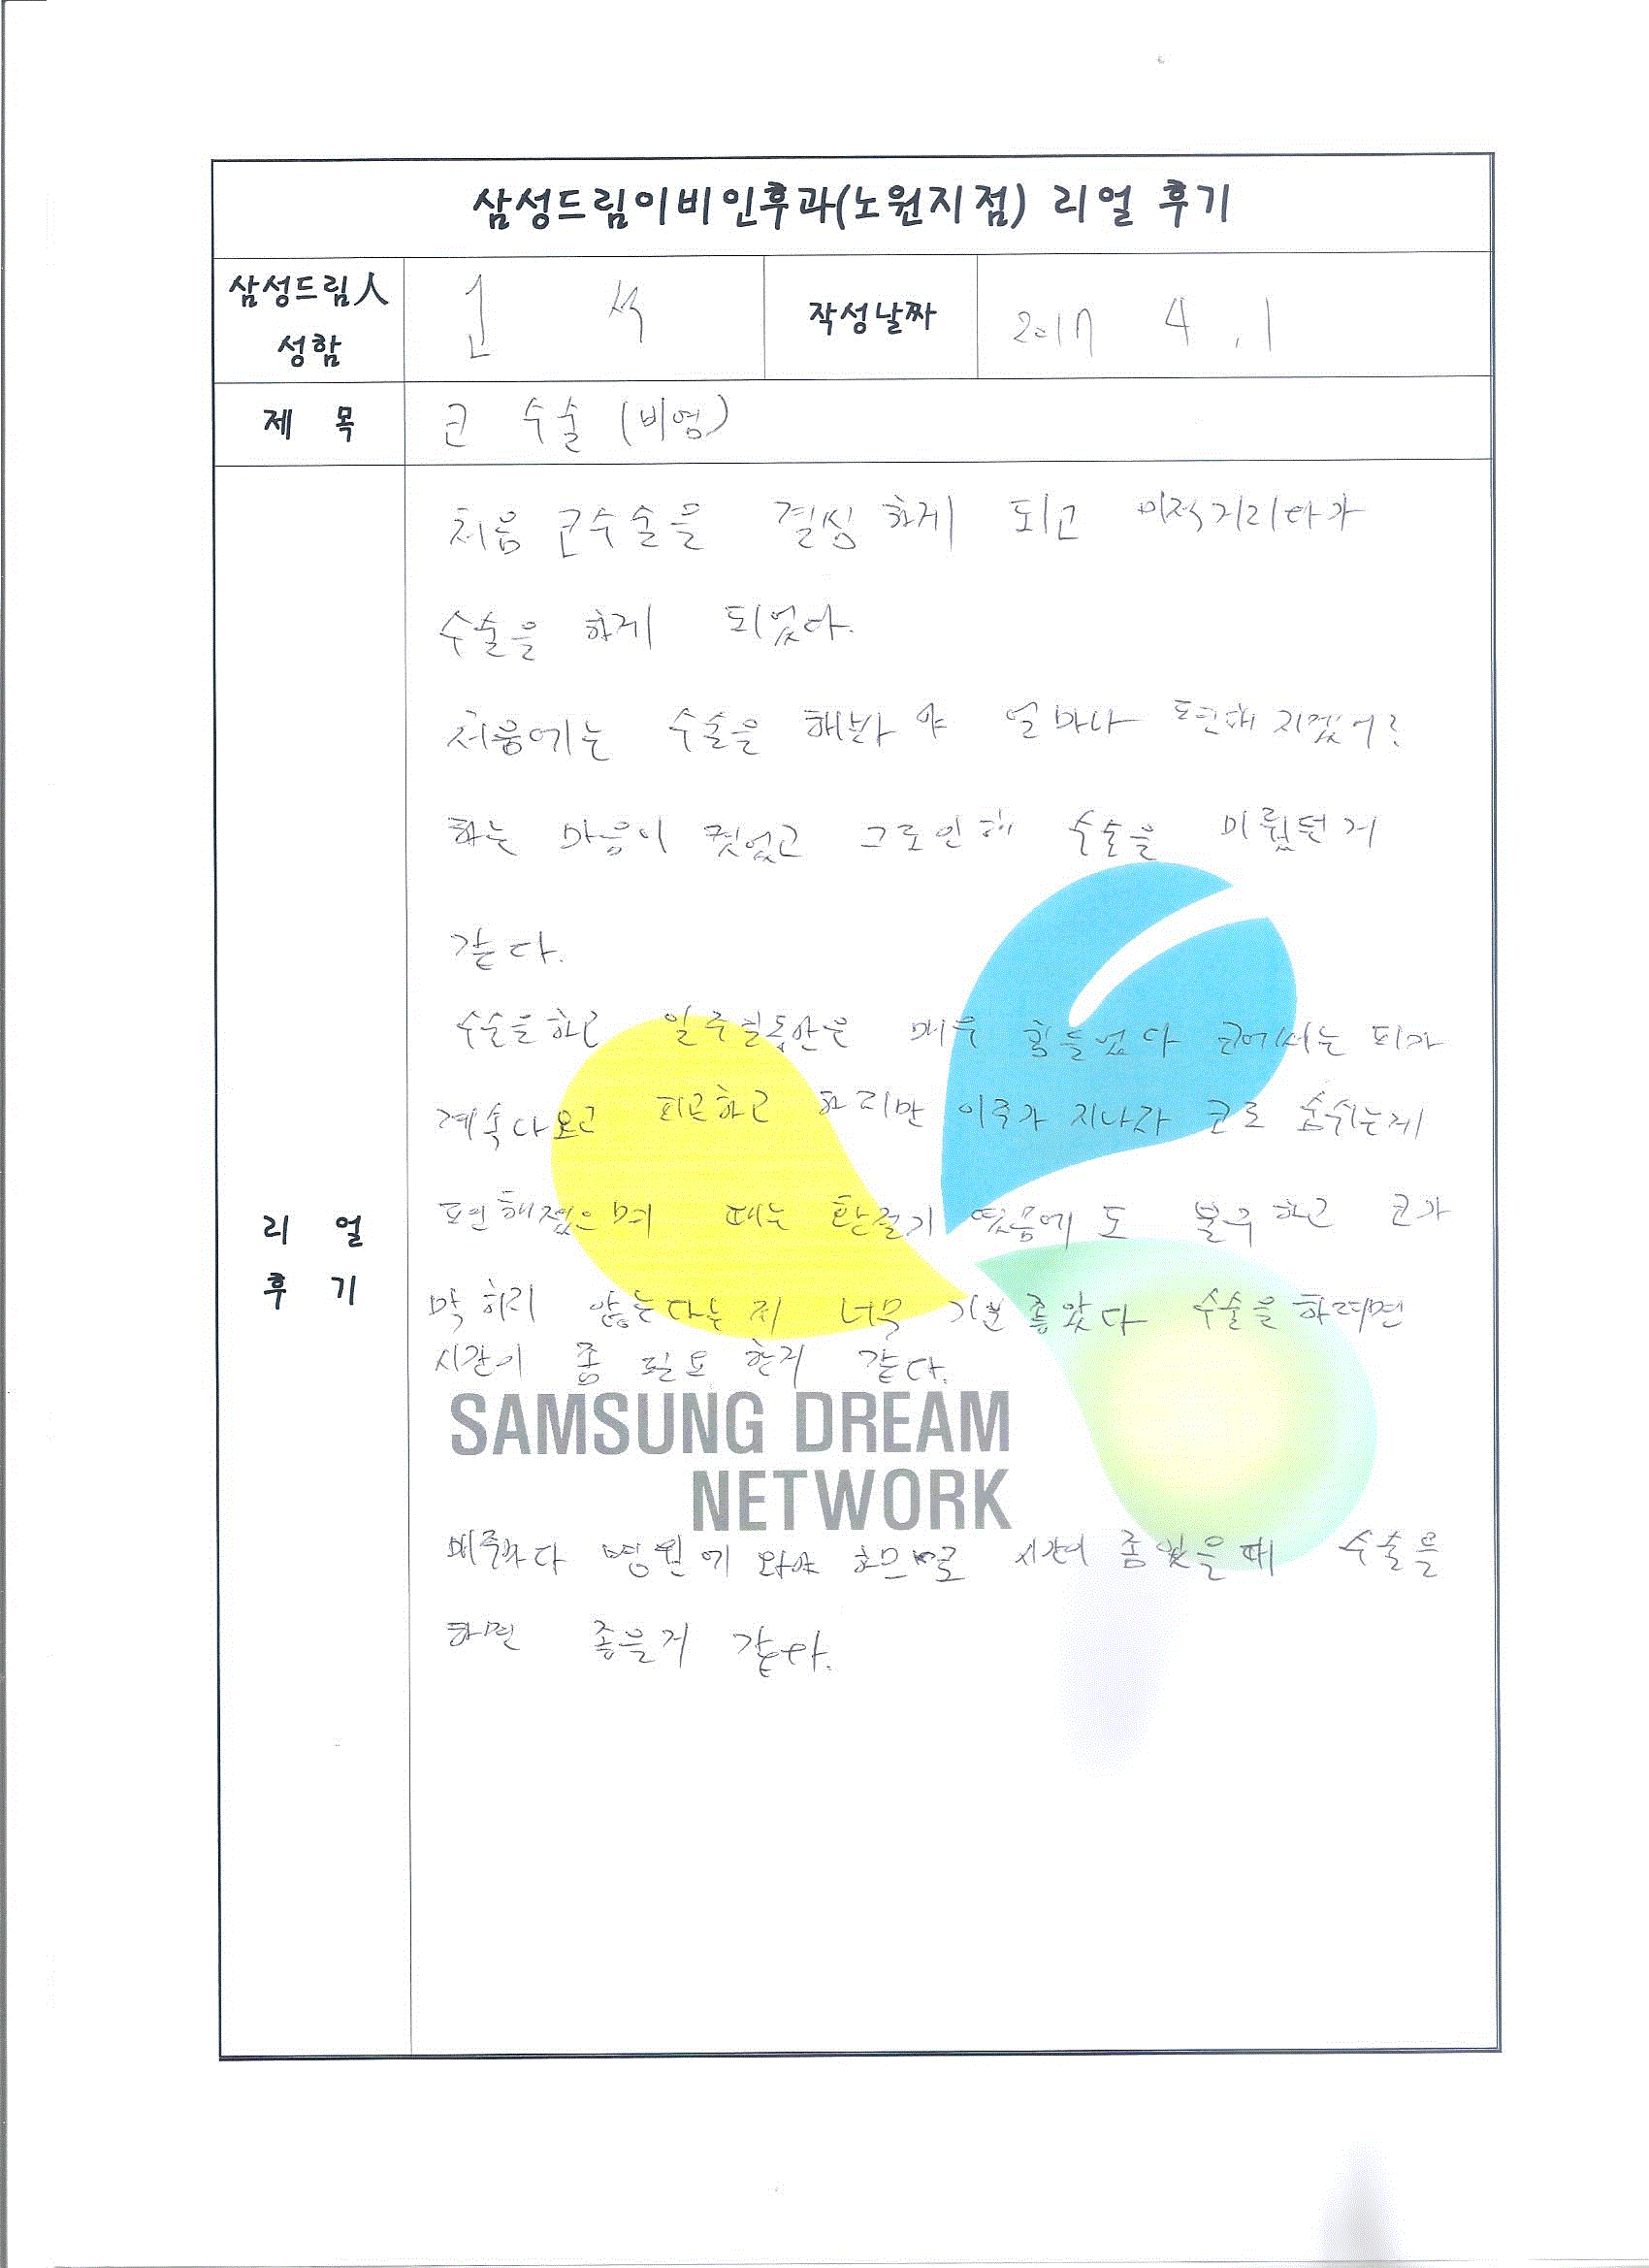 삼성드림이비인후과(노원지점) 리얼 후기
삼성드림人 성함
작성날짜 2017 4.1
제 목 코 수술 (비염)
처음 코수술을 결심 하게 되고 미적거리다가
수술을 하게 되었다.
처음에는 수술을 해봐야 얼마나 편해지겠어?
하는 마음이 컸었고 그로인해 수술을 미뤘던거
같다.
수술을하고 일주일동안은 매우 힘들었다 코에서는 피가
계속나오고 피곤하고 하지만 이주가 지나자 코로 숨쉬는게
편해졌으며 때는 환절기 였음에도 불구하고 코가
막히지 않는다는게 너무 기분좋았다 수술을하려면
시간이 좀 필요 한거 같다.
리 얼
후 기
SAMSUNG DREAM
NETWORK
매주마다 병원에 와야 하므로 시간이 좀 있을때 수술을
하면 좋을거 같다.